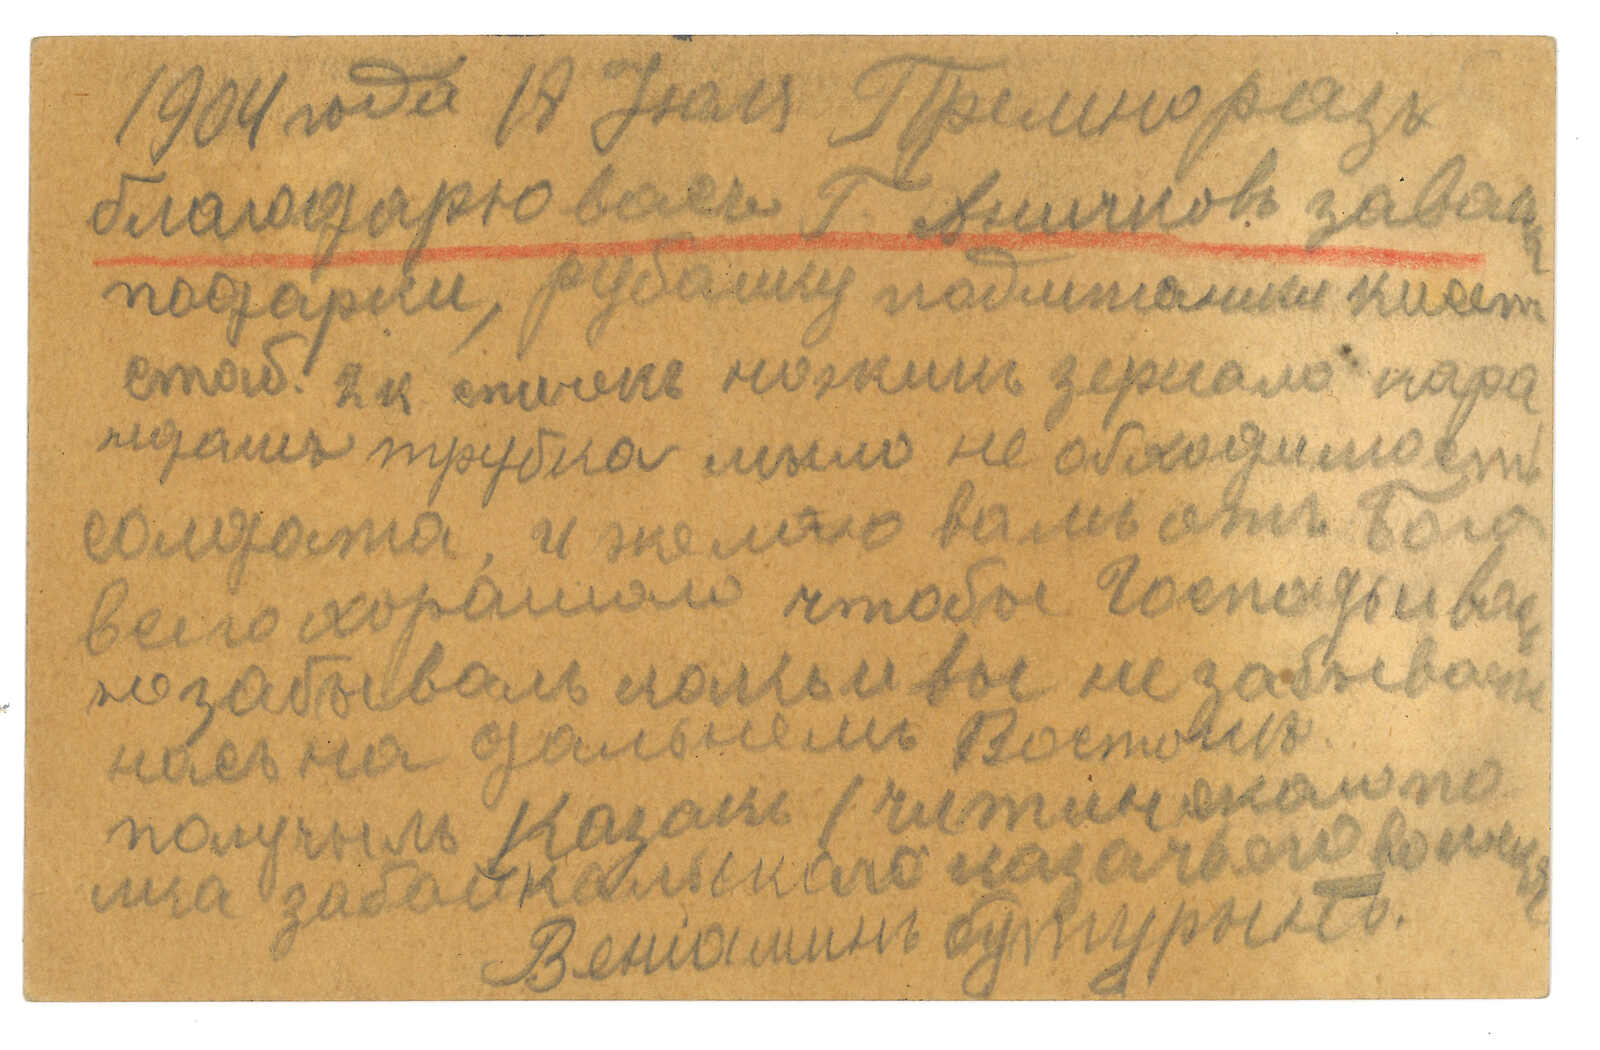 1904 года 18 Июля Премногоразъ
благодарю васъ Г. Аничковъ заваши
подарки, рубашку подштаники кисет
таб. 2 к спичекъ ножикъ зеркало кара
ндашъ трубка мыло не обходимость
солдата, и желаю вамъ отъ Бога
всего хорашаго чтобы Господь и вас
незабывалъ какъ и вы не забываети
насъ на дальнемъ Востокъ.
получилъ Казакъ 1 читинскаго по
лка забайкальскаго казачьего войска
Веніаминъ бутурынъ.